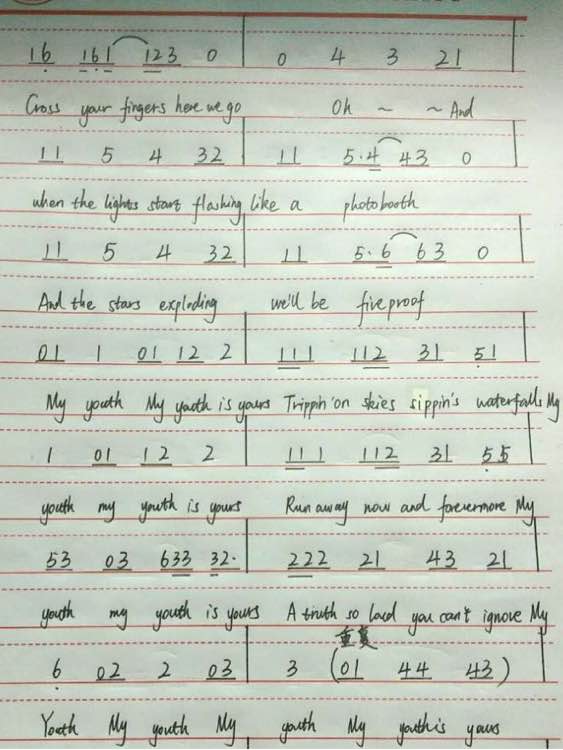 16 161 123 0 | 0 4 3 21
Cross your fingers here we go Oh ~ ~ And
11 5 4 32 | 11 5·4 43 0
when the lights start flashing like a photobooth
11 5 4 32 | 11 5·6 63 0
And the stars exploding we'll be fireproof
01 1 01 12 2 | 111 112 31 51
My youth My youth is yours Trippin'on skies sippin's waterfalls My
1 01 12 2 | 111 112 31 55
youth my youth is yours Run away now and forevermore My
53 03 633 32· | 222 21 43 21
youth my youth is yours A truth so loud you can't ignore My
重复
6 02 2 03 | 3 (01 44 43)
Youth My youth My youth My youth is yours